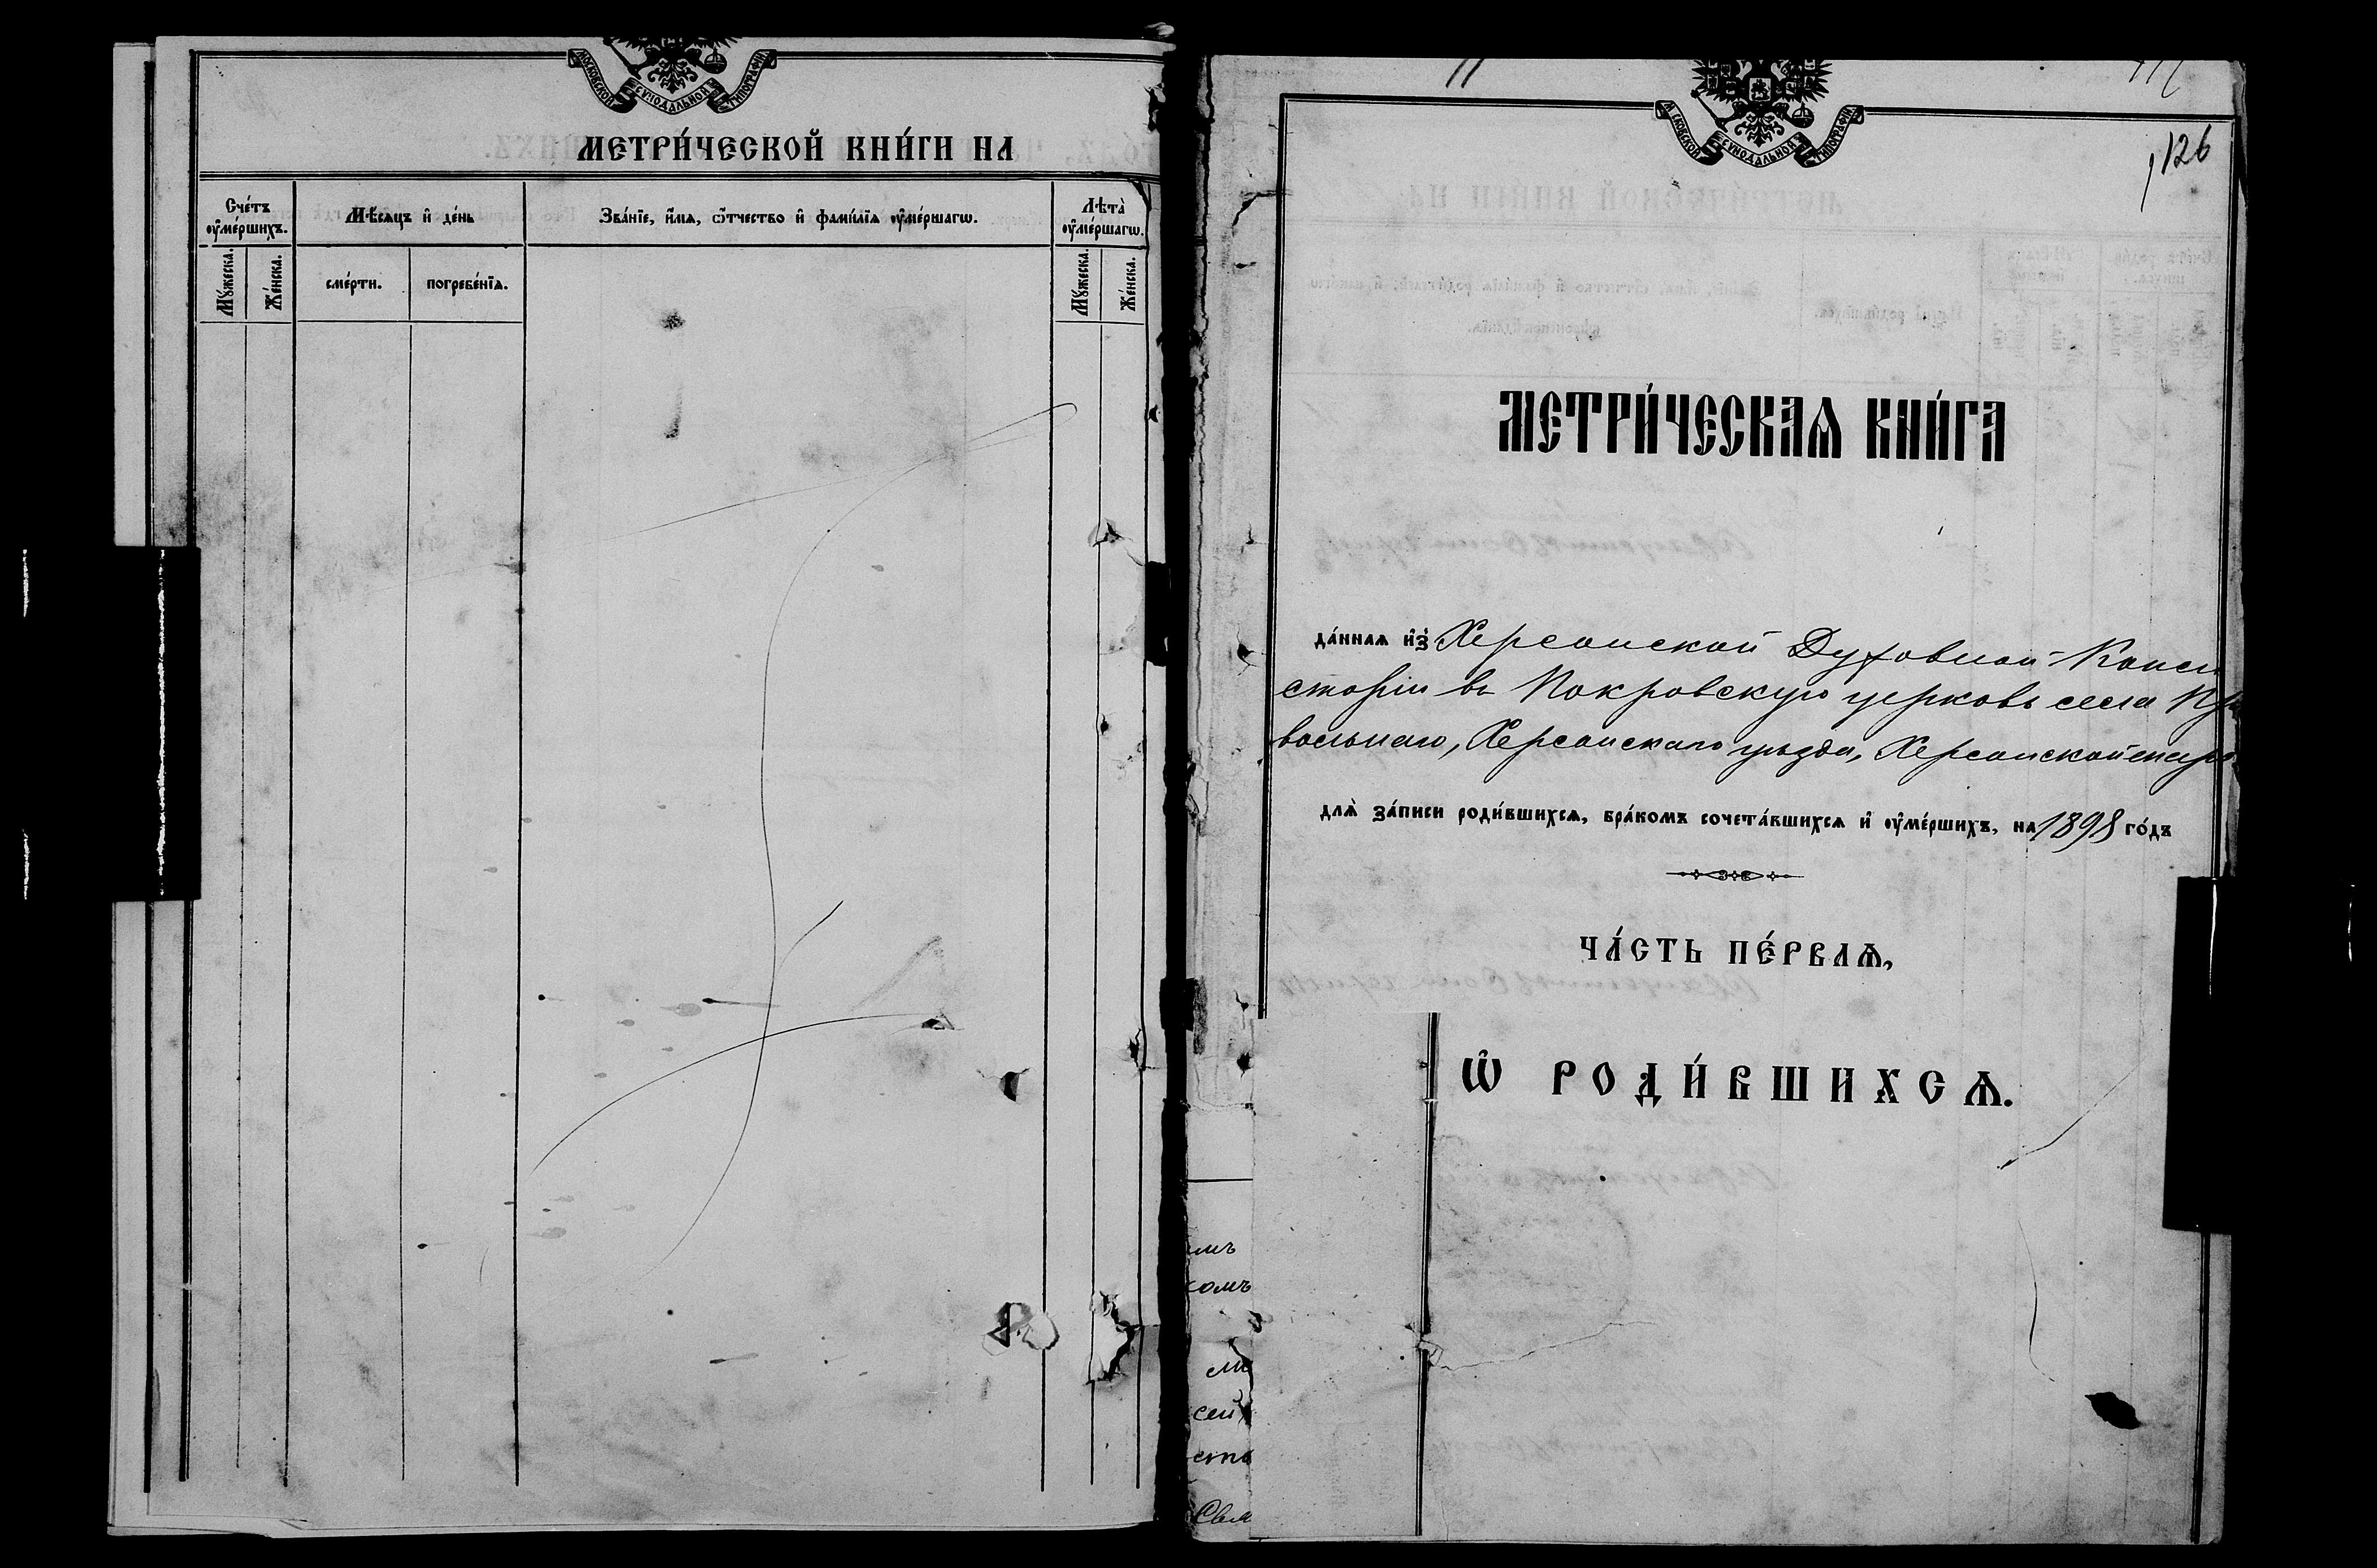 МОСКОВСКОЙ СѴНОДАЛЬНОЙ ТИПОГРАФІИ
МЕТРИ́ЧЕСКОЙ КНИ́ГИ НА
Сче́тъ оу҆ме́ршихъ.
Мѣ́сяцъ и҆ де́нь
Зва́нїе, и҆́мѧ, ѻ҆́тчество и҆ фами́лїѧ оу҆ме́ршагѡ.
Лѣта̀ оу҆ме́ршагѡ.
Мꙋ́жеска.
Же́нска.
сме́рти.
погребе́нїѧ.
Мꙋ́жеска.
Же́нска.
МОСКОВСКОЙ СѴНОДАЛЬНОЙ ТИПОГРАФІИ
126
МЕТРИ́ЧЕСКАѦ КНИ́ГА
да́ннаѧ и҆з̾ Херсонской Духовной Конси
сторіи въ Покровскую церковь села
вольнаго, Херсонскаго уѣзда, Херсонской
длѧ̀ за́писи роди́вшихсѧ, бра́комъ сочета́вшихсѧ и҆ оу҆ме́ршихъ, на 1898 го́дъ
ЧА́СТЬ ПЕ́РВАѦ,
Ѽ РОДИ́ВШИХСѦ.
мъ
омъ
сей